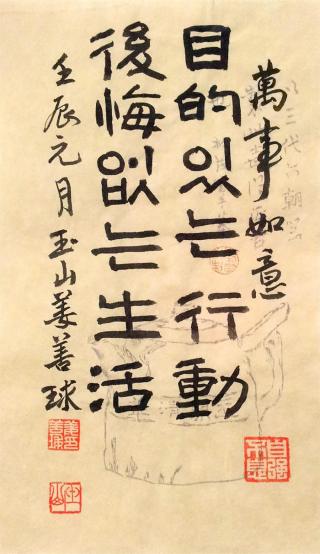 萬事如意
目的있는行動
後悔없는生活
壬辰元月玉山姜善球
自强不息